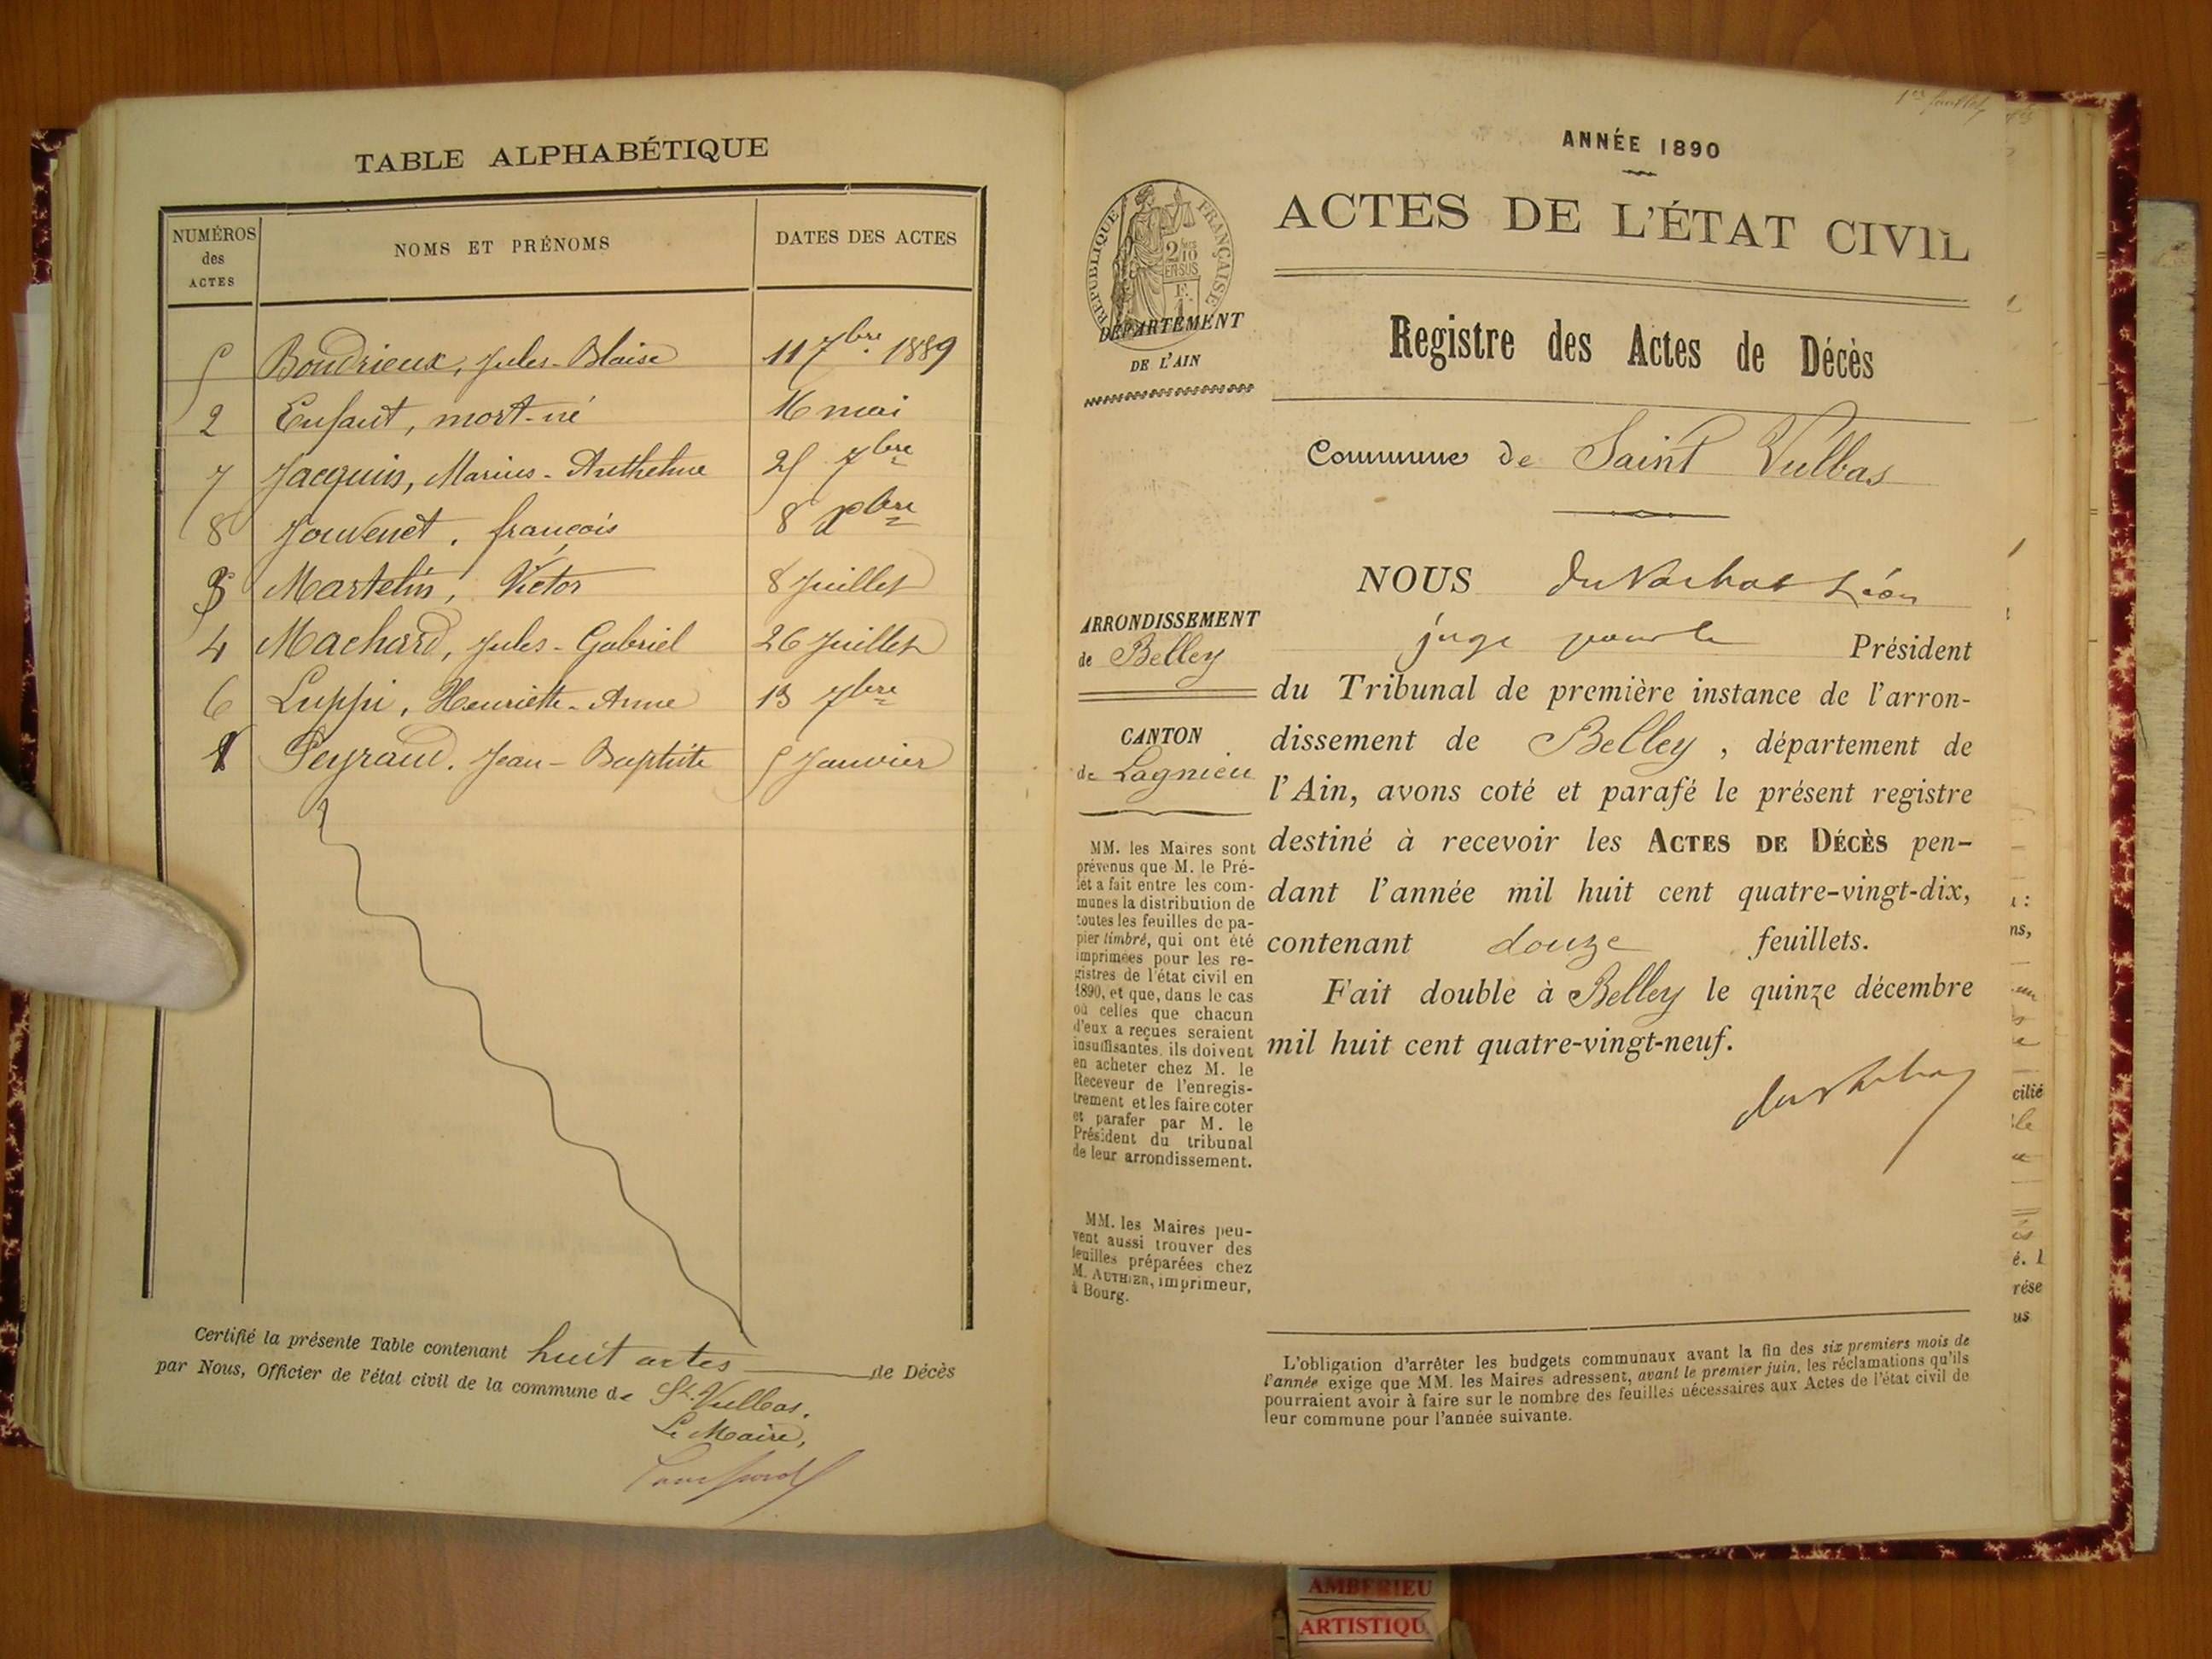 TABLE ALPHABÉTIQUE
NUMÉROS
des
ACTES
NOMS ET PRÉNOMS
DATES DES ACTES
5 Boudrieux, Jules-Blaise 11 7bre 1889
2 Enfant, mort-né 16 mai
7 Jacquin, Marius-Anthelme 25 7bre
8 Jouvenet, françois 8 Xbre
3 Martelin, Victor 8 Juillet
4 Machard, Jules-Gabriel 26 Juillet
6 Luppi, Henriette-Anne 13 7bre
1 Peyraud. Jean-Baptiste 5 Janvier
Certifié la présente Table contenant huit actes de Décès
par Nous, Officier de l'état civil de la commune de St. Vulbas.
Le Maire,
ANNÉE 1890
ACTES DE L'ÉTAT CIVIL
RÉPUBLIQUE FRANÇAISE
2/10
EN SUS
DÉPARTEMENT
DE L'AIN
Registre des Actes de Décès
Commune de Saint Vulbas
ARRONDISSEMENT
de Belley
CANTON
de Lagnieu
MM. les Maires sont
prévenus que M. le Pré-
fet a fait entre les com-
munes la distribution de
toutes les feuilles de pa-
pier timbré, qui ont été
imprimées pour les re-
gistres de l'état civil en
1890, et que, dans le cas
où celles que chacun
d'eux a reçues seraient
insuffisantes, ils doivent
en acheter chez M. le
Receveur de l'enregis-
trement et les faire coter
et parafer par M. le
Président du tribunal
de leur arrondissement.
MM. les Maires peu-
vent aussi trouver des
feuilles préparées chez
M. AUTHIER, imprimeur,
à Bourg.
NOUS Léon
juge pour le Président
du Tribunal de première instance de l'arron-
dissement de Belley, département de
l'Ain, avons coté et parafé le présent registre
destiné à recevoir les ACTES DE DÉCÈS pen-
dant l'année mil huit cent quatre-vingt-dix,
contenant douze feuillets.
Fait double à Belley le quinze décembre
mil huit cent quatre-vingt-neuf.
L'obligation d'arrêter les budgets communaux avant la fin des six premiers mois de
l'année exige que MM. les Maires adressent, avant le premier juin, les réclamations qu'ils
pourraient avoir à faire sur le nombre des feuilles nécessaires aux Actes de l'état civil de
leur commune pour l'année suivante.
AMBERIEU
ARTISTIQU